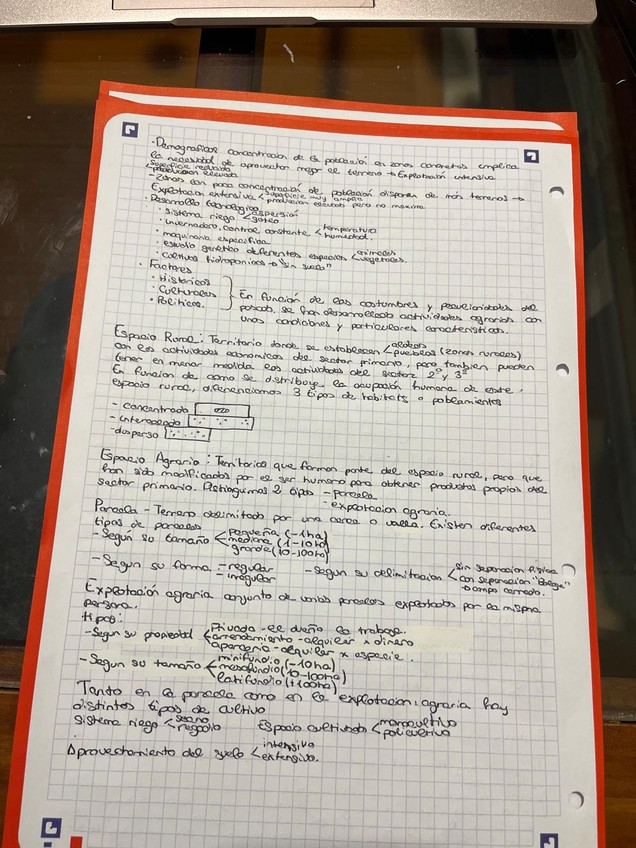 · Demográficos concentración de la población en zonas concretas implica
la necesidad de aprovechar mejor el terreno → Explotación intensiva
< superficie reducida
producción elevada
- Zonas con poca concentración de población disponen de más terrenos →
Explotación extensiva < superficie muy amplia
producción elevada pero no máxima
· Desarrollo tecnológico
· sistema riego < aspersión
goteo
· invernadero, control constante < temperatura
humedad.
· maquinaria específica
· estudio genético diferentes especies < animales
vegetales.
· cultivos hidropónicos → "sin suelo"
· Factores
· Históricos
· Culturales
· Políticos.
En función de las costumbres y peculiaridades del
, se han desarrollado actividades agrarias con
unas condiciones y particulares características.
Espacio Rural: Territorio donde se establecen < aldeas
pueblos (zonas rurales)
con las actividades económicas del sector primario, pero también pueden
tener en menor medida las actividades del sector 2º y 3º
En función de como se distribuye la ocupación humana de este
espacio rural, diferenciamos 3 tipos de hábitats o poblamientos
- concentrado
- intercalado
- disperso
Espacio Agrario: Territorios que forman parte del espacio rural, pero que
han sido modificados por el ser humano para obtener productos propios del
sector primario. Distinguimos 2 tipos - parcela
- explotación agraria.
Parcela - Terreno delimitado por una cerca o valla. Existen diferentes
tipos de parcelas
- Según su tamaño < pequeña (-1ha)
mediana (1-10ha)
grande (10-100ha)
- Según su forma - regular
- irregular
- Según su delimitación < sin separación física
con separación "Bocage"
→ campo cerrado.
Explotación agraria conjunto de varias parcelas explotadas por la misma
persona.
tipos:
- Según su propiedad < Privada - el dueño la trabaja.
arrendamiento - alquiler x dinero
aparcería - alquiler x especie.
- Según su tamaño < minifundio (-10ha)
mesofundio (10-100ha)
latifundio (+100ha)
Tanto en la parcela como en la explotación agraria hay
distintos tipos de cultivo
Sistema riego < secano
regadío
Espacio cultivado < monocultivo
policultivo
Aprovechamiento del suelo < intensivo
extensivo.